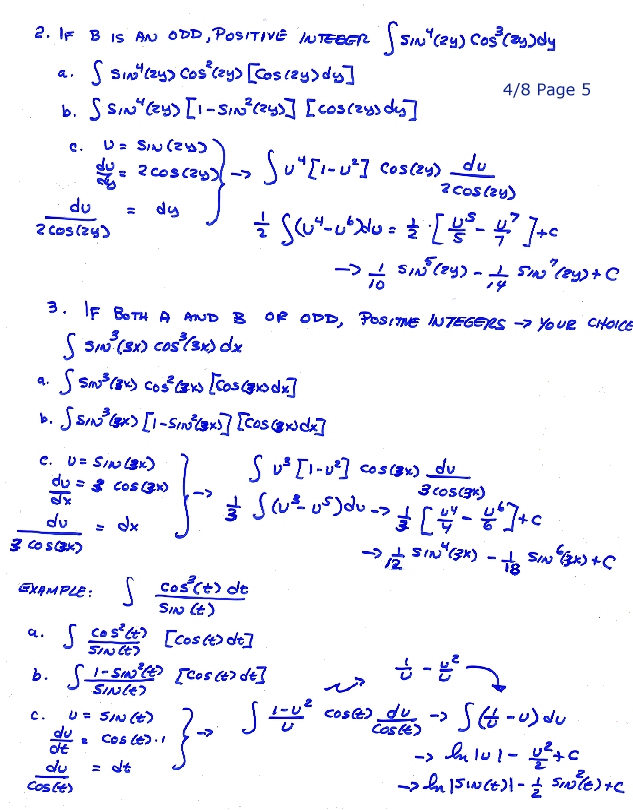 2. IF B IS AN ODD, POSITIVE INTEGER ∫ SIN⁴(2y) COS³(2y)dy
a. ∫ SIN⁴(2y) COS²(2y) [COS(2y)dy]
4/8 Page 5
b. ∫ SIN⁴(2y) [1-SIN²(2y)] [COS(2y)dy]
c. U = SIN(2y)
du/dy = 2COS(2y) → ∫ U⁴[1-U²] COS(2y) du/2COS(2y)
du/2COS(2y) = dy
1/2 ∫(U⁴-U⁶)du = 1/2 · [U⁵/5 - U⁷/7]+C
→ 1/10 SIN⁵(2y) - 1/14 SIN⁷(2y)+C
3. IF BOTH A AND B OR ODD, POSITIVE INTEGERS → YOUR CHOICE
∫ SIN³(3x) COS³(3x)dx
a. ∫ SIN³(3x) COS²(3x) [COS(3x)dx]
b. ∫ SIN³(3x) [1-SIN²(3x)] [COS(3x)dx]
c. U = SIN(3x)
du/dx = 3 COS(3x) → ∫ U³[1-U²] COS(3x) du/3COS(3x)
du/3COS(3x) = dx
1/3 ∫(U³-U⁵)du → 1/3 [U⁴/4 - U⁶/6]+C
→ 1/12 SIN⁴(3x) - 1/18 SIN⁶(3x)+C
EXAMPLE: ∫ COS³(t) dt/SIN(t)
a. ∫ COS²(t)/SIN(t) [COS(t)dt]
b. ∫ 1-SIN²(t)/SIN(t) [COS(t)dt] → 1/U - U²/U
c. U = SIN(t)
du/dt = COS(t)·1 → ∫ 1-U²/U COS(t) du/COS(t) → ∫(1/U - U)du
du/COS(t) = dt
→ ln|U| - U²/2+C
→ ln|SIN(t)| - 1/2 SIN²(t)+C